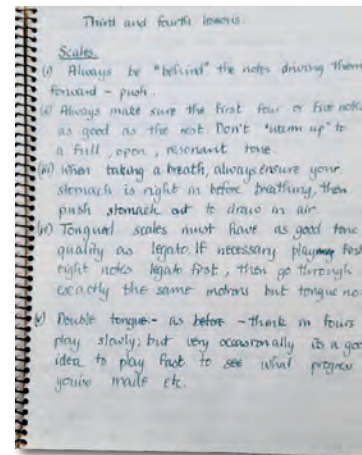 Third and fourth lessons.
Scales.
(i) Always be "behind" the notes driving them
forward - push.
(ii) Always make sure the first four or five notes
as good as the rest. Don't "warm up" to
a full, open, resonant tone.
(iii) When taking a breath, always ensure your
stomach is right in before breathing, then
push stomach out to draw in air.
(iv) Tongued scales must have as good tone
quality as legato. If necessary play
eight notes legato first, then go through
exactly the same motions but tongue no
(v) Double tongue:- as before - think in fours
play slowly; but very occasionally its a goo
idea to play fast to see what progress
you've made etc.